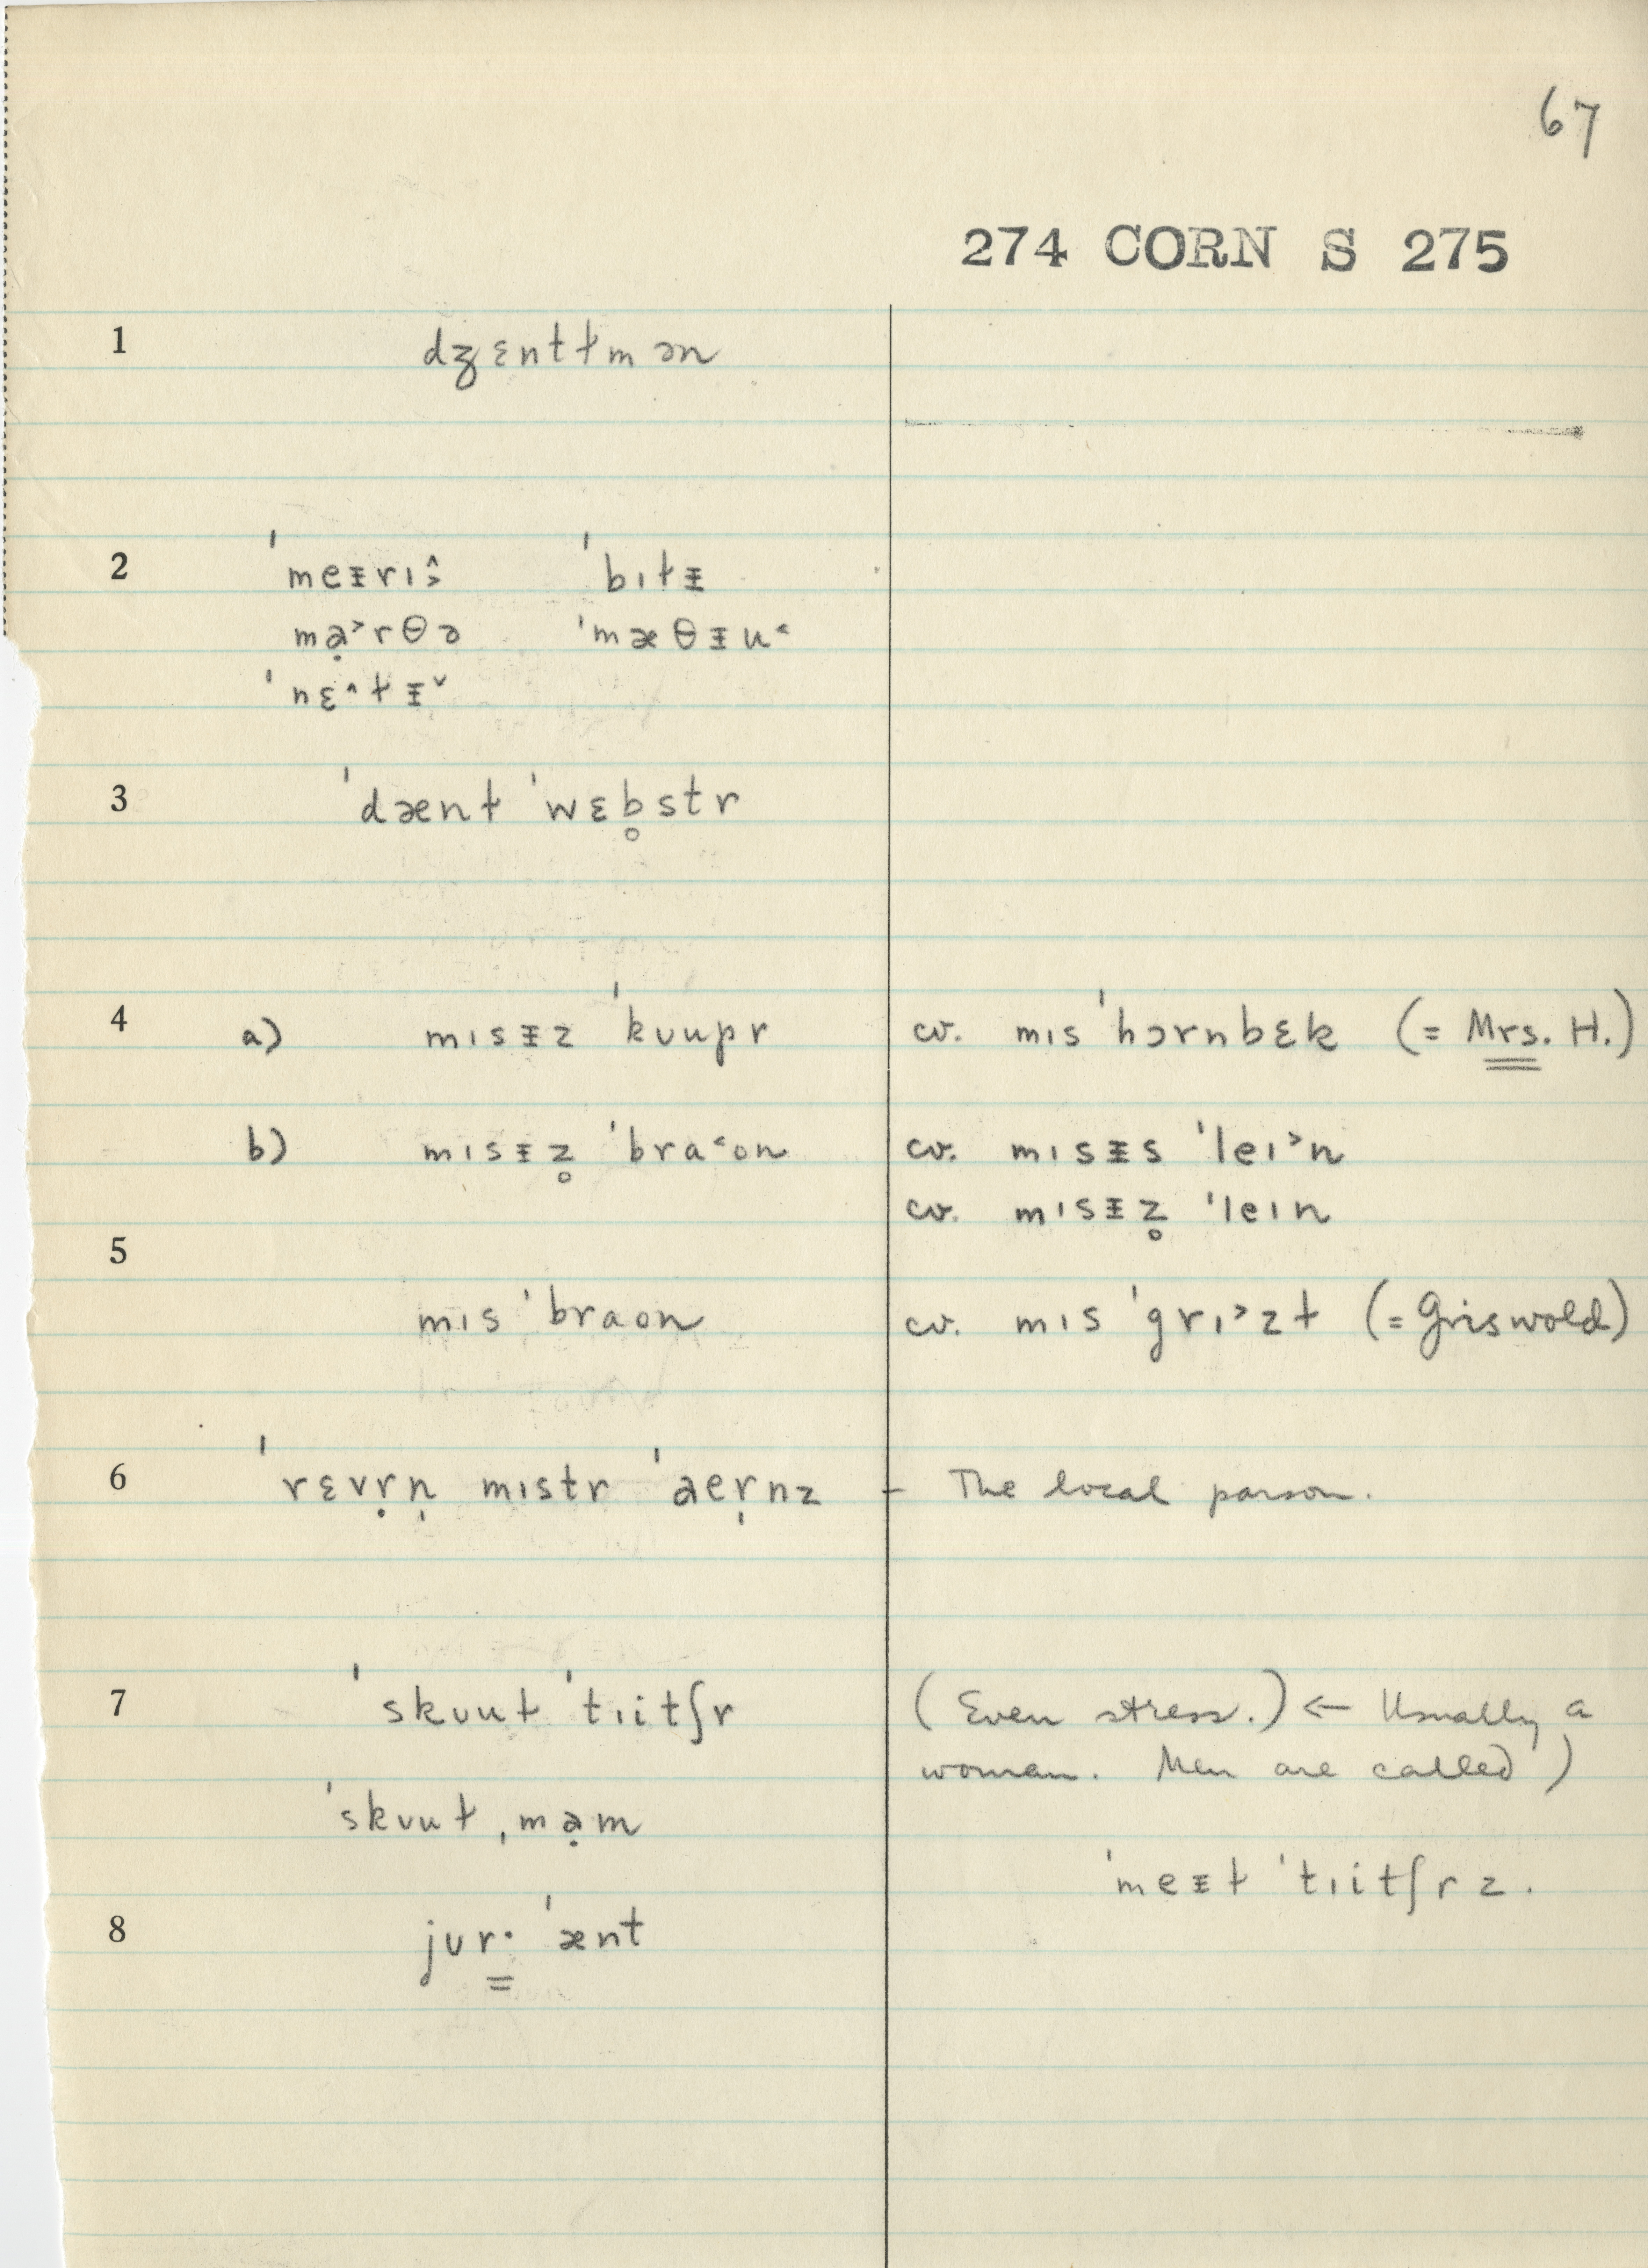 67
274 CORN S 275
1 dʒɛntɫmən
2 ˈmeᵻrɪ˔˃ ˈbɪɫᵻ
mạ˃rθə ˈmæθᵻu˂
ˈnɛ˄ɫᵻ˅
3 ˈdænɫ ˈwɛb̥str
4 a) mɪsᵻz ˈkʊupr cv. mɪs ˈhɔrnbɛk (= Mrs. H.)
b) mɪsᵻz̥ ˈbra˂ʊn cv. mɪsᵻs ˈleɪ˃n
cv. mɪsᵻz̥ ˈleɪn
5
mɪs ˈbraʊn cv. mɪs ˈgrɪ˃zɫ (= Griswold)
6 ˈrɛvṛn̩ mɪstr ˈaer̩nz – The local parson.
7 ˈskʊuɫ ˈtɪitʃr (Even stress.) ← Usually a
woman. Men are called)
ˈskʊuɫˌmạm
ˈmeᵻɫ ˈtɪitʃrz.
8 jʊr͇· ˈænt